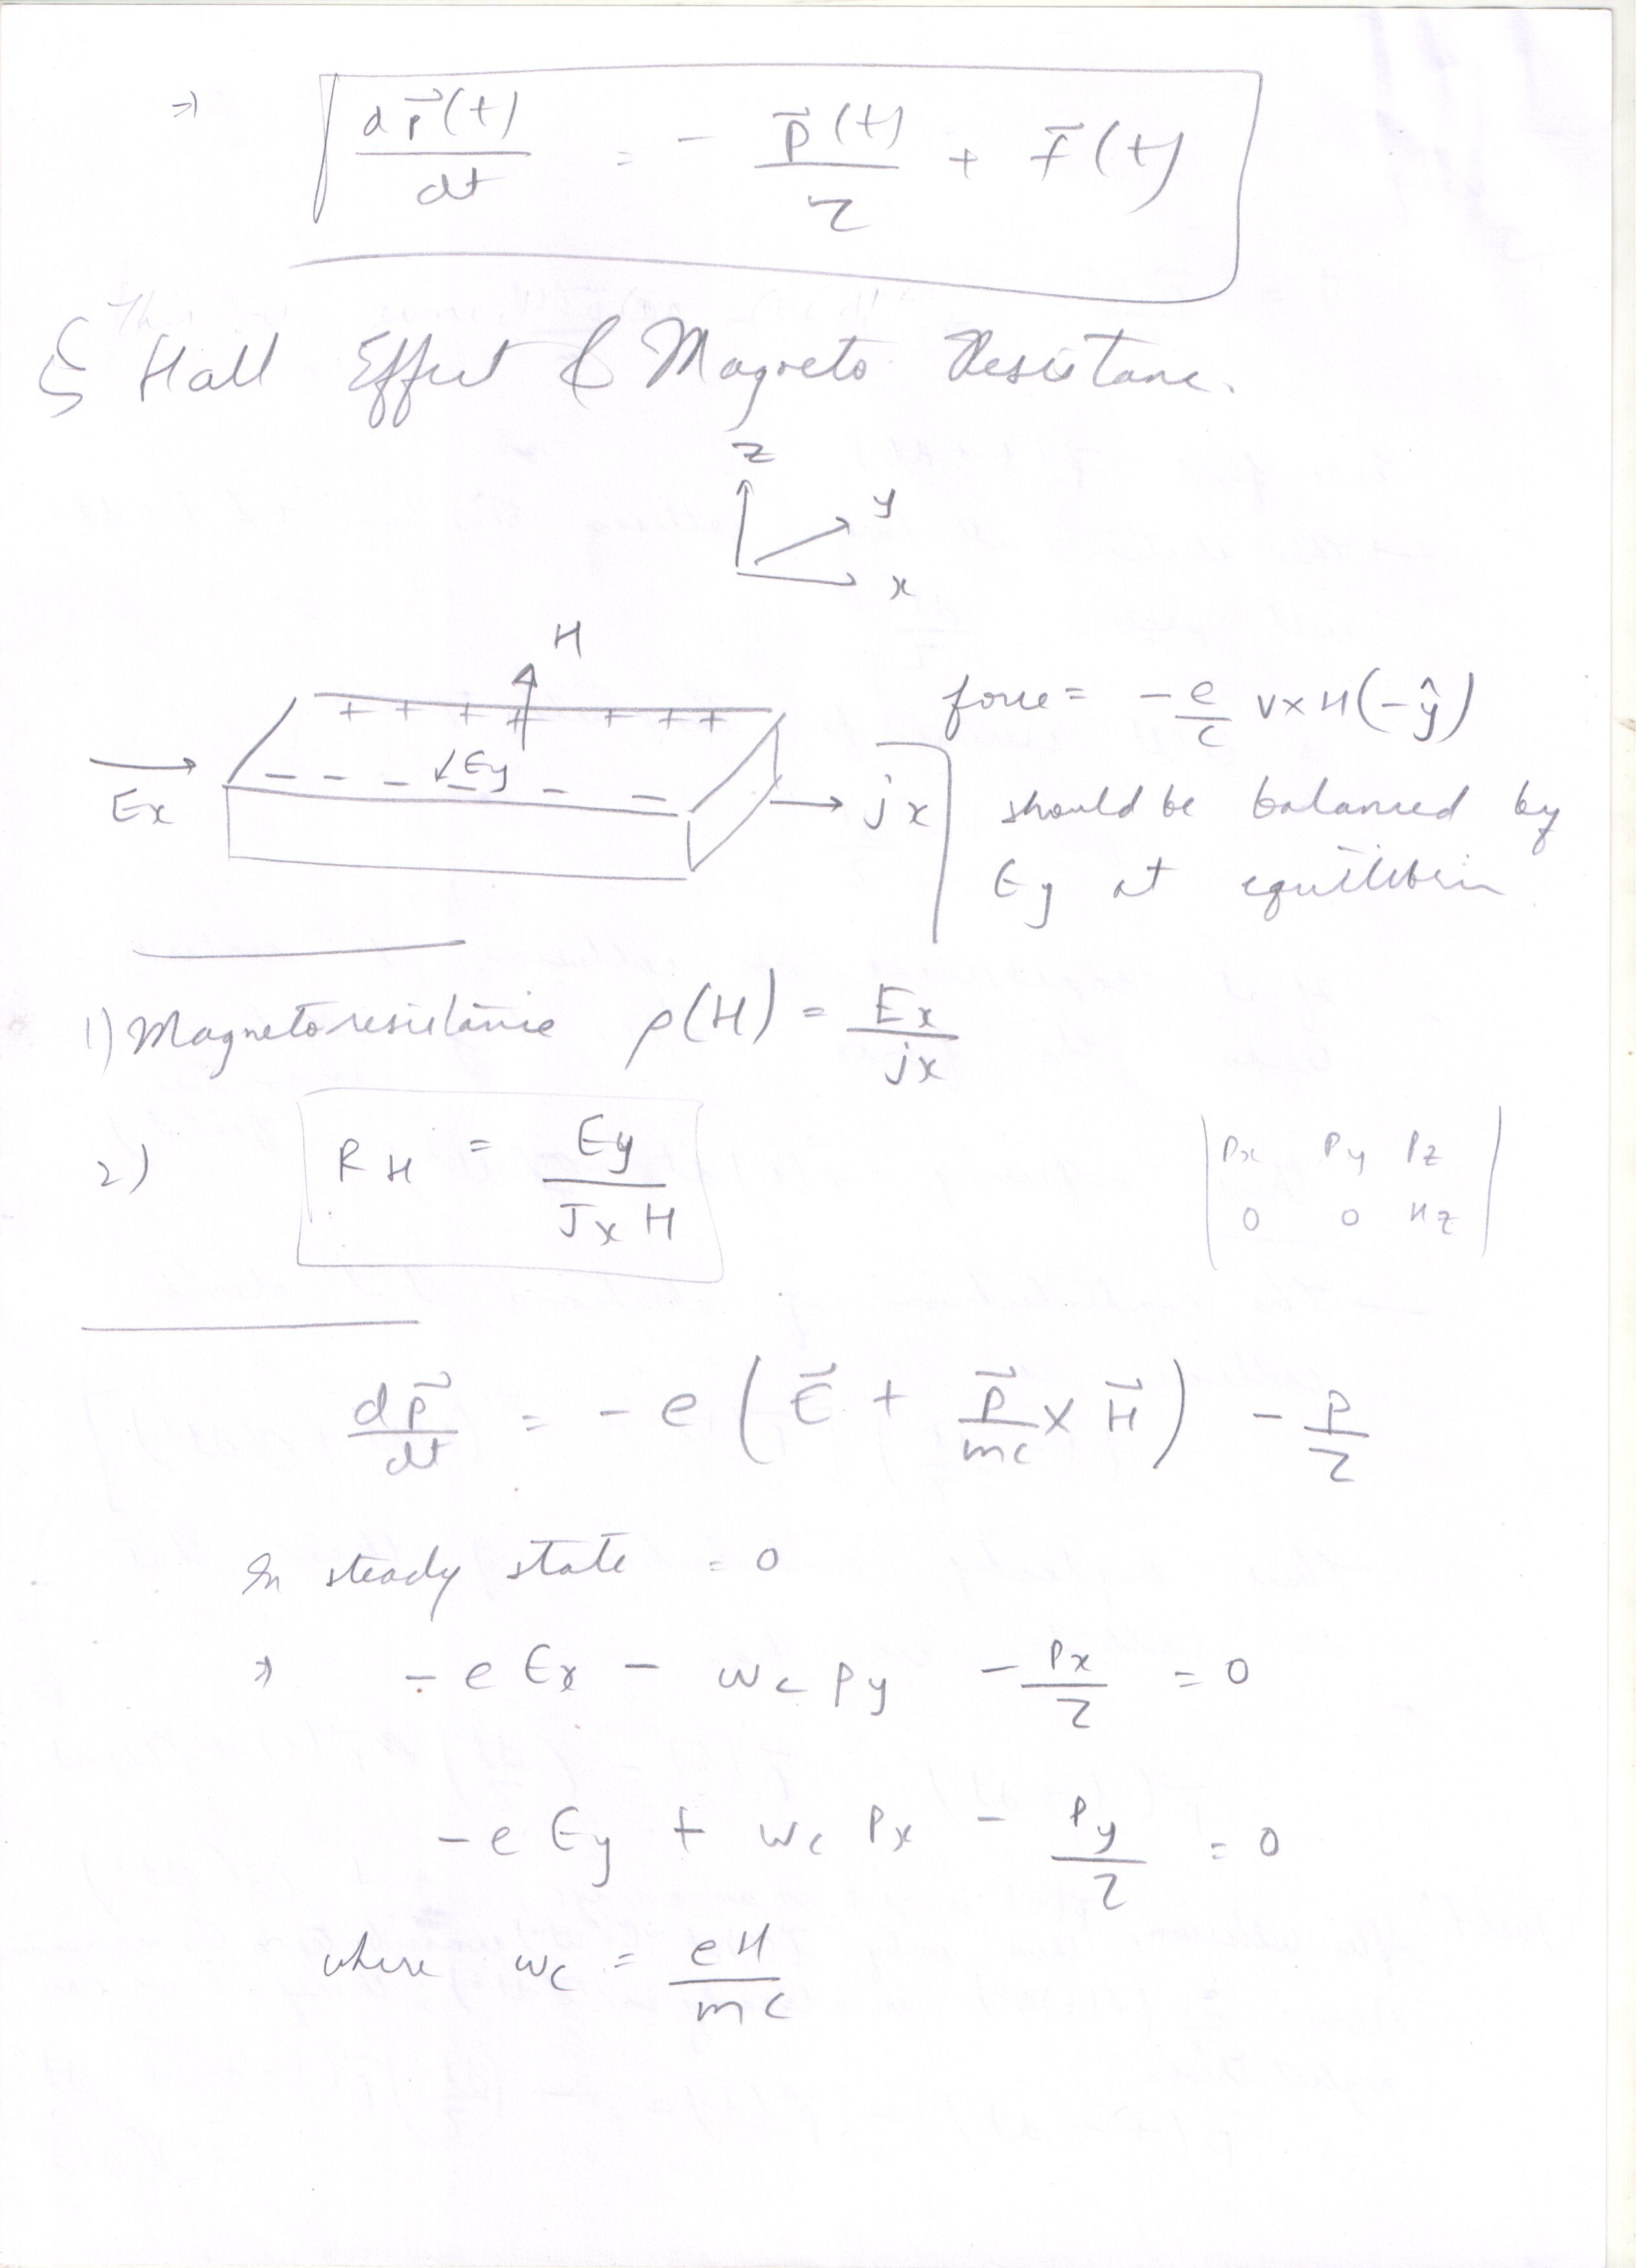 ⇒ d p⃗(t)/dt = - p⃗(t)/τ + f⃗(t)
§ Hall Effect & Magneto Resistance.
z
y
x
H
+ + + + + + +
force = - e/c v×H(-ŷ)
Ex
- - - ↙Ey - - -
→ jx
should be balanced by
Ey at equilibrium
1) Magnetoresistance ρ(H) = Ex/jx
2) RH = Ey/Jx H
| Px Py Pz |
| 0 0 Hz |
dp⃗/dt = - e ( E⃗ + p⃗/mc × H⃗ ) - p/τ
In steady state = 0
⇒ - e Ex - ωc py - px/τ = 0
- e Ey + ωc Px - Py/τ = 0
where ωc = eH/mc